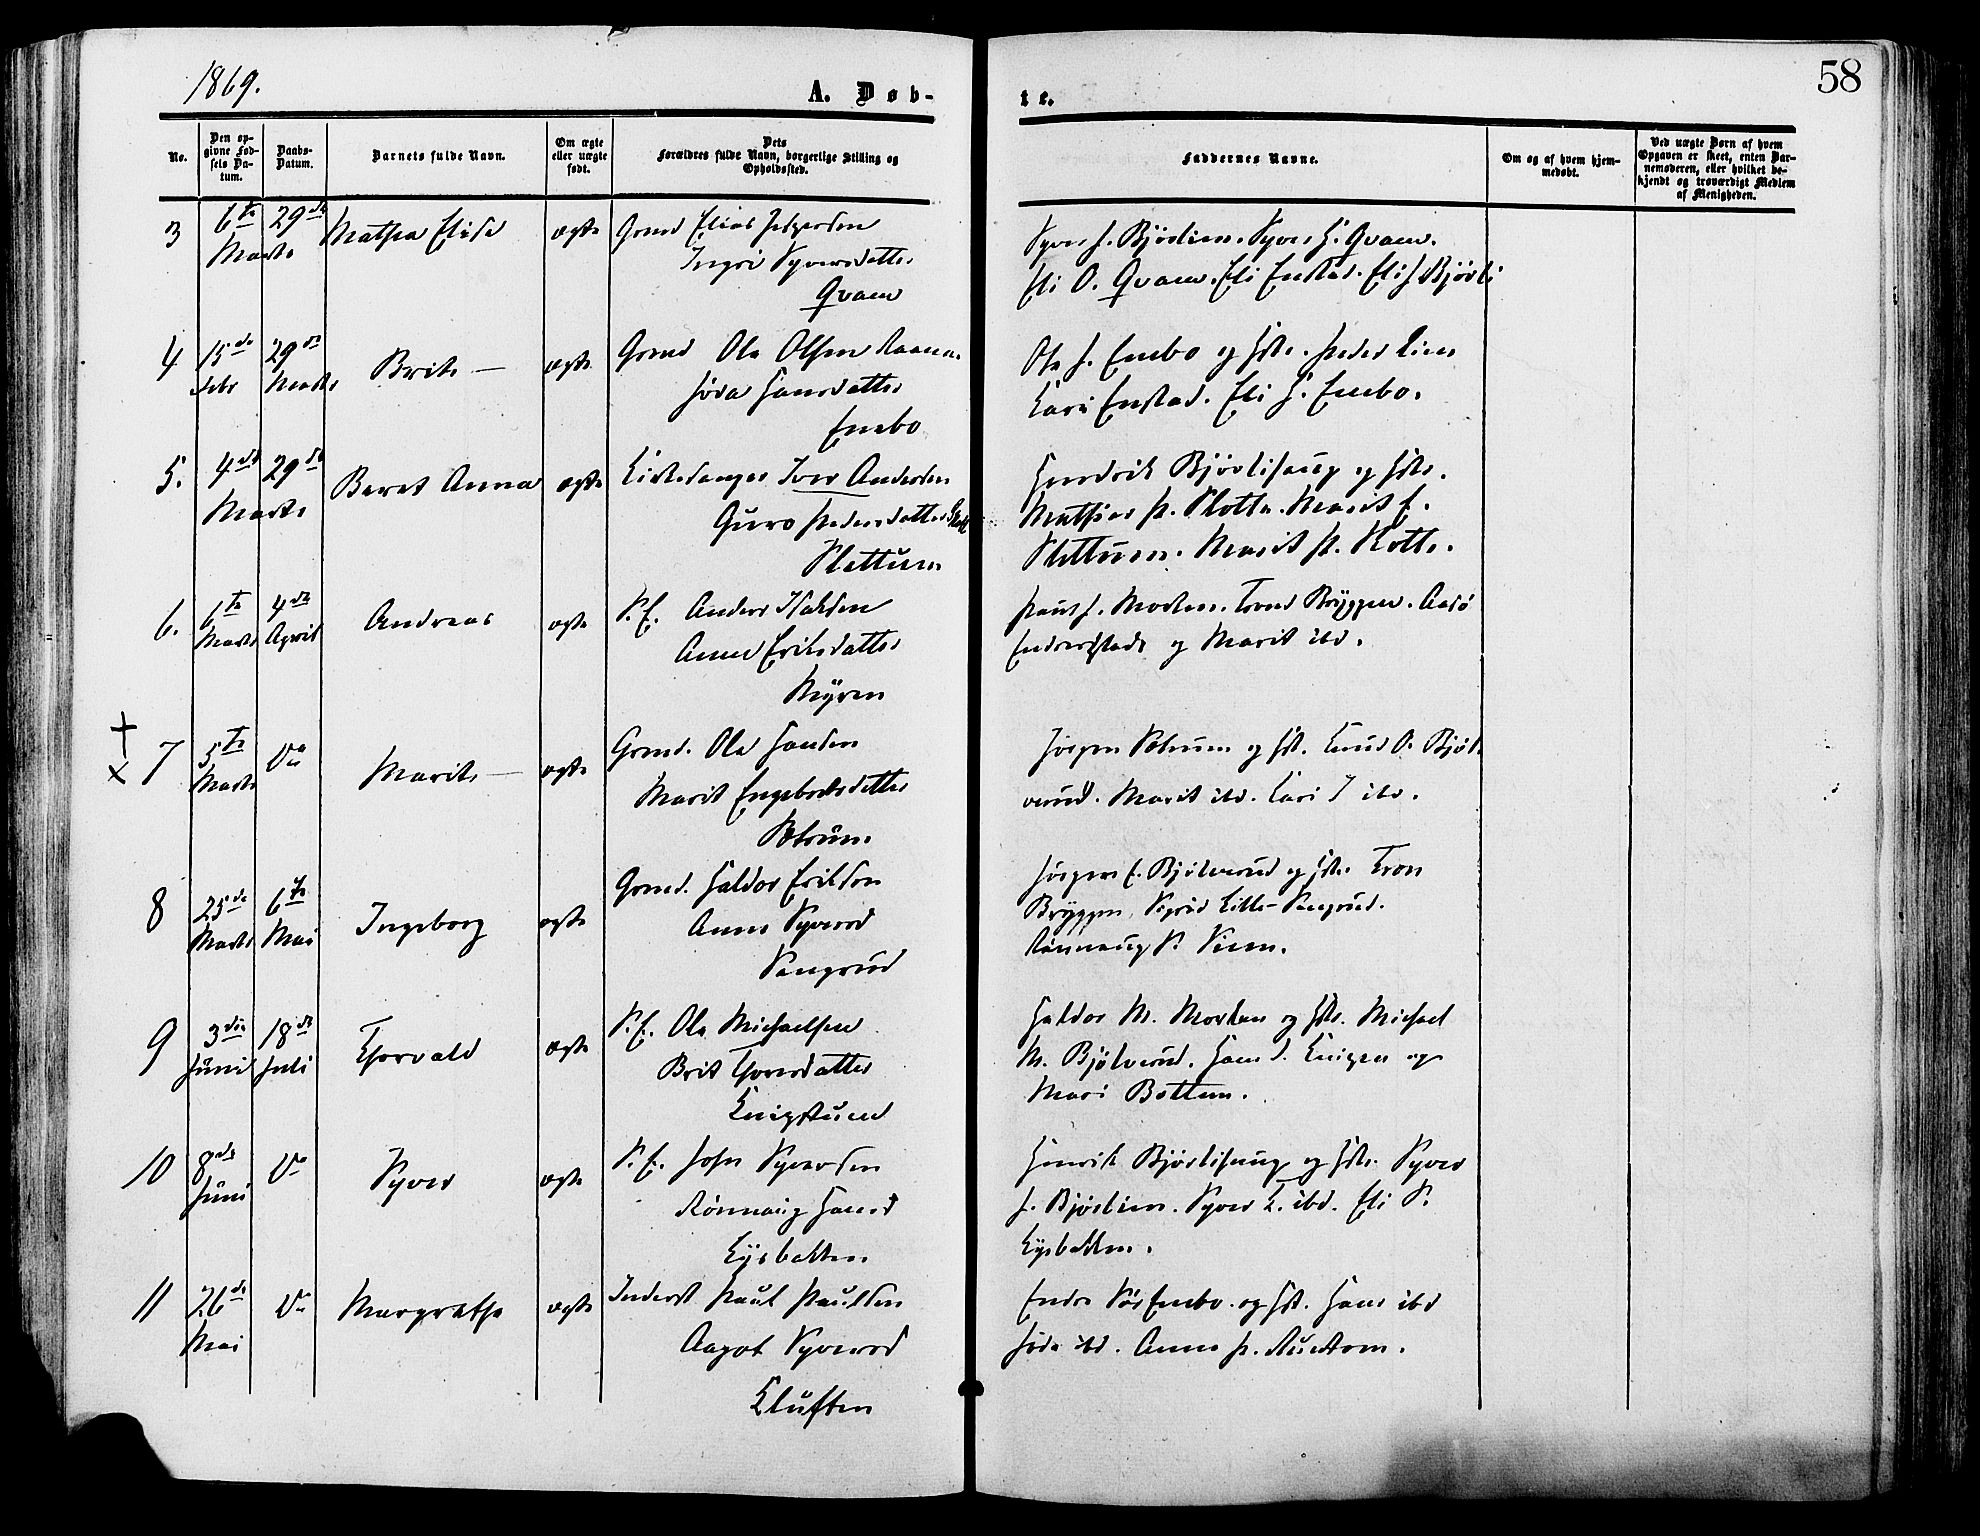 1869.
A. Døb-
te.
58
No.
Den op-
givne Fød-
sels Da-
tum.
Daabs-
Datum.
Barnets fulde Navn.
Om ægte
eller uægte
født.
Dets
Forældres fulde Navn, borgerlige Stilling og
Opholdssted.
Faddernes Navne.
Om og af hvem hjem-
medøbt.
Ved uægte Børn af hvem
Opgaven er skeet, enten Bar-
nemoderen, eller hvilket be-
kjendt og troværdigt Medlem
af Menigheden.
3 6te Marts 29de Mathea Elise ægte Grmd Elias
Ingri Syversdatter
Qvam
Syver J. Bjørlien. Syver H. Qvam.
Eli O. Qvam. Eli Enstad. Eli J Bjørli
4 15de Febr 29de Marts Brite ægte Grmd Ole Olsen
Jøda Hansdatter
Enebo
Ole J. Enebo og Hst. Peder Lien
Kari Enstad. Eli H. Enebo.
5. 4de Marts 29de Beret Anna ægte Kirkesanger Iver Andersen
Guro Pedersdatter
Slettum
Hendrik Bjørlihaug og Hst.
Mathias P. Slotte. Marit E.
Slettum. Marit P. Slotte.
6. 6te Marts 4de April Andreas ægte S.E. Anders
Anne Eriksdatter
Myren
Paul J. Morken. Trond Bryggen.
og Marit ibd.
7 5te Marts Do Marit ægte Grmd. Ole Hansen
Marit Engebretsdatter
Solrum
Jørgen Solrum og Hst. Knud O. Bjøl-
verud. Marit ibd. Kari J ibd.
8 25de Marts 6te Mai Ingeborg ægte Grmd. Haldor Eriksen
Anne Syversd
Sangrud
Jørgen E. Bjølverud og Hst. Tron
Bryggen, Sigrid Lille-Sangrud.
Rønnaug S. Sæm.
9 3die Juni 18de Juli Thorvald ægte S.E. Ole Michaelsen
Brit Thoresdatter
Haldor M. Morken og Hst. Michael
M. Bjølverud. Hans og
Mari Bottem.
10 8de Juni Do Syver ægte S.E. John Syversen
Rønnaug Hansd
Lysbakken
Henrik Bjørlihaug og Hst. Syver
J. Bjørlien. Syver K. ibd. Eli S.
Lysbakken.
11 26de Mai Do Margrethe ægte Inderst Paul Paulsen
Aagot Syversd
Kluften
Endre Sør Enebo og Hst. Hans ibd
Jøda ibd. Anne P.